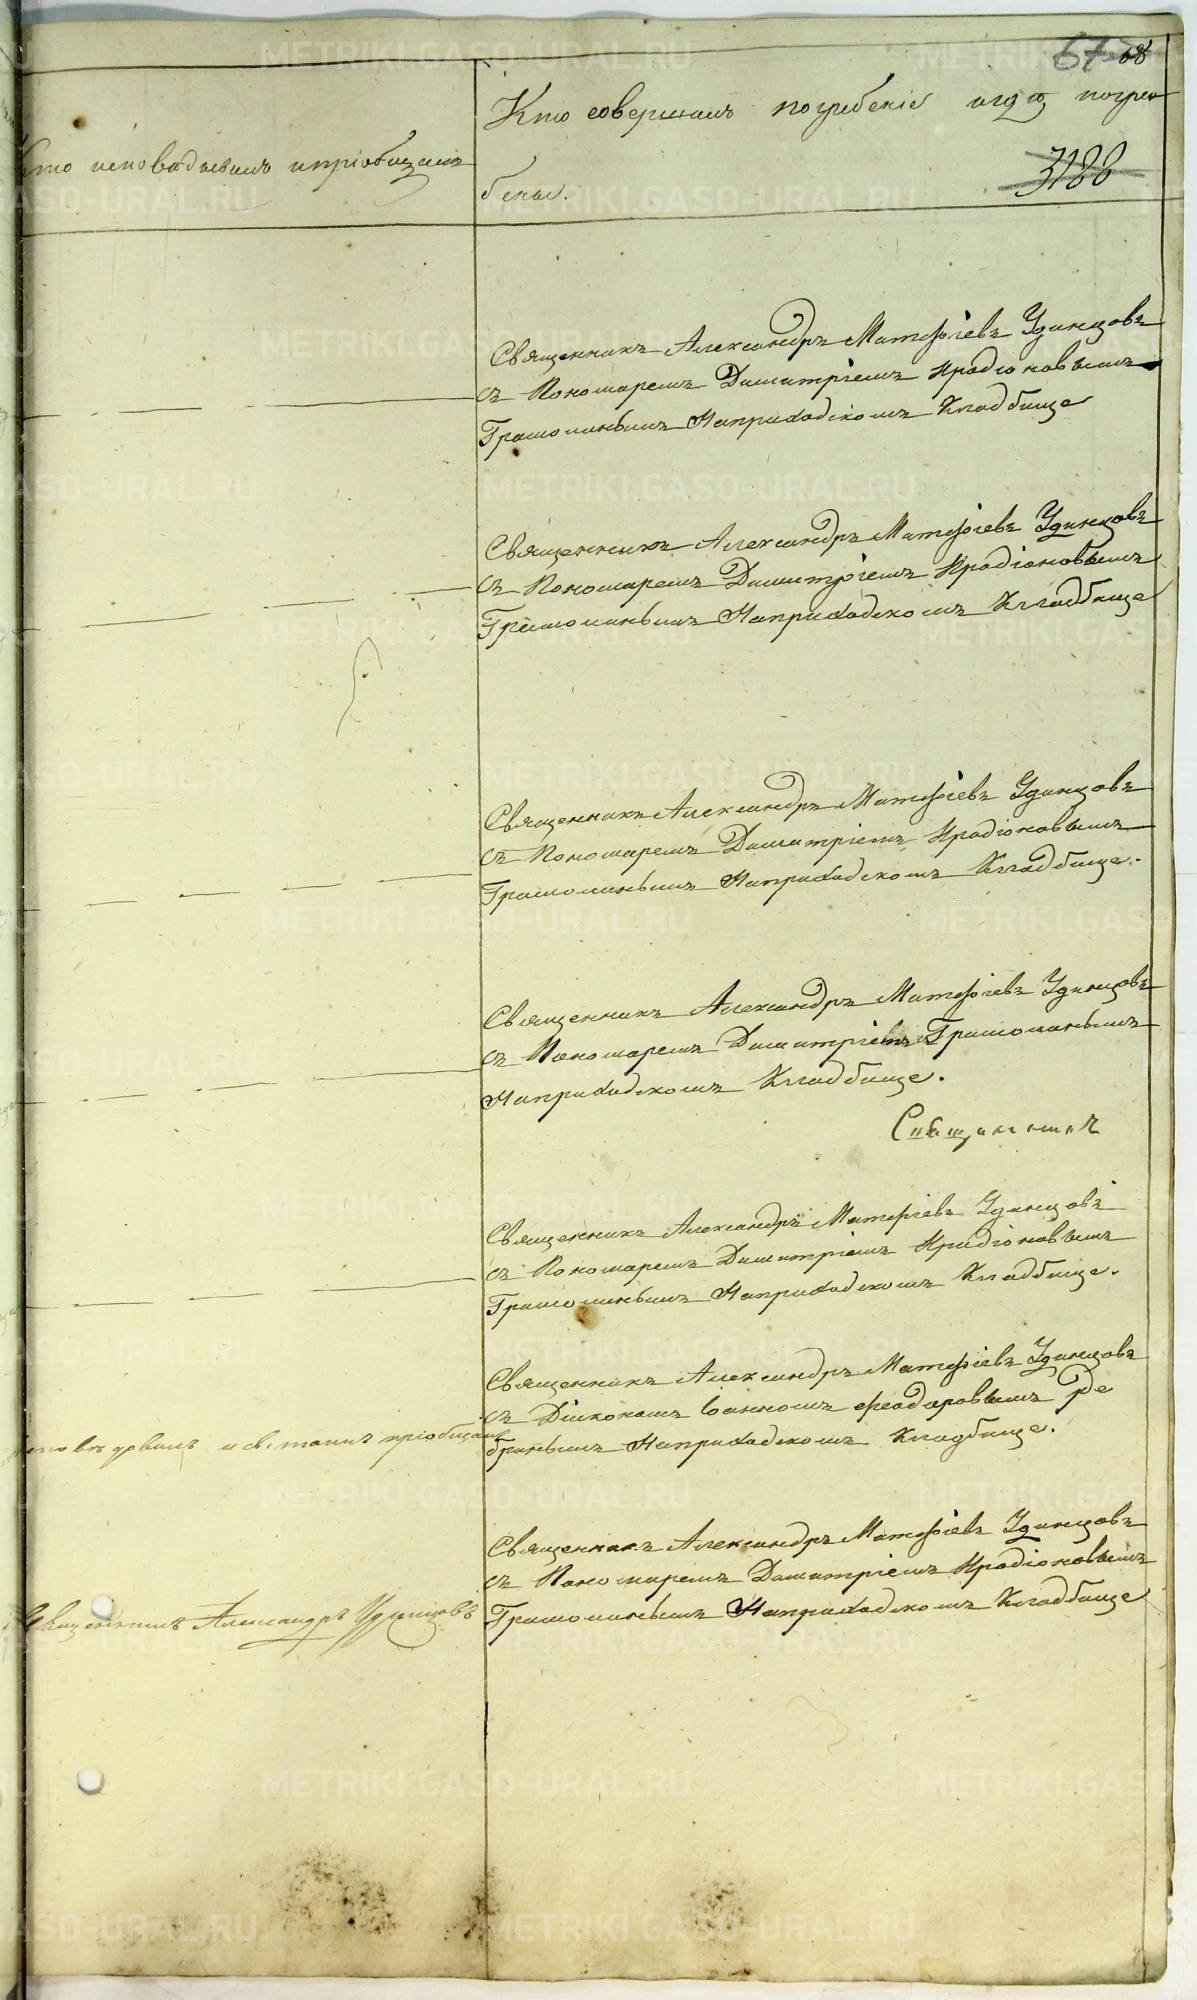 67 68
Кто исповѣдывалъ и пріобщалъ
Кто совершалъ погребеніе и гдѣ погре
бены.
3188
Священникъ Александръ Матфіевъ Удинцовъ
съ Пономаремъ Димитріемъ Иродіоновымъ
Грамолинымъ На приходскомъ Кладбище
Священникъ Александръ Матфіевъ Удинцовъ
съ Пономаремъ Димитріемъ Иродіоновымъ
Грамолинымъ На приходскомъ Кладбище
Священникъ Александръ Матфіевъ Удинцовъ
съ Пономаремъ Димитріемъ Иродіоновымъ
Грамолинымъ На приходскомъ Кладбище.
Священникъ Александръ Матфіевъ Удинцовъ
съ Пономаремъ Димитріемъ Грамолинымъ
На приходскомъ Кладбище.
Священникъ Александръ Матфіевъ Удинцовъ
съ Пономаремъ Димитріемъ Иродіоновымъ
Грамолинымъ На приходскомъ Кладбище.
Священникъ Александръ Матфіевъ Удинцовъ
съ Діакономъ Іоанномъ Феодоровымъ Ре
бринымъ На приходскомъ Кладбище.
исповѣдовалъ и св. таинъ пріобщалъ
Священникъ Александръ Удинцовъ
Священникъ Александръ Матфіевъ Удинцовъ
съ Пономаремъ Димитріемъ Иродіоновымъ
Грамолинымъ На приходскомъ Кладбище
METRIKI.GASO-URAL.RU